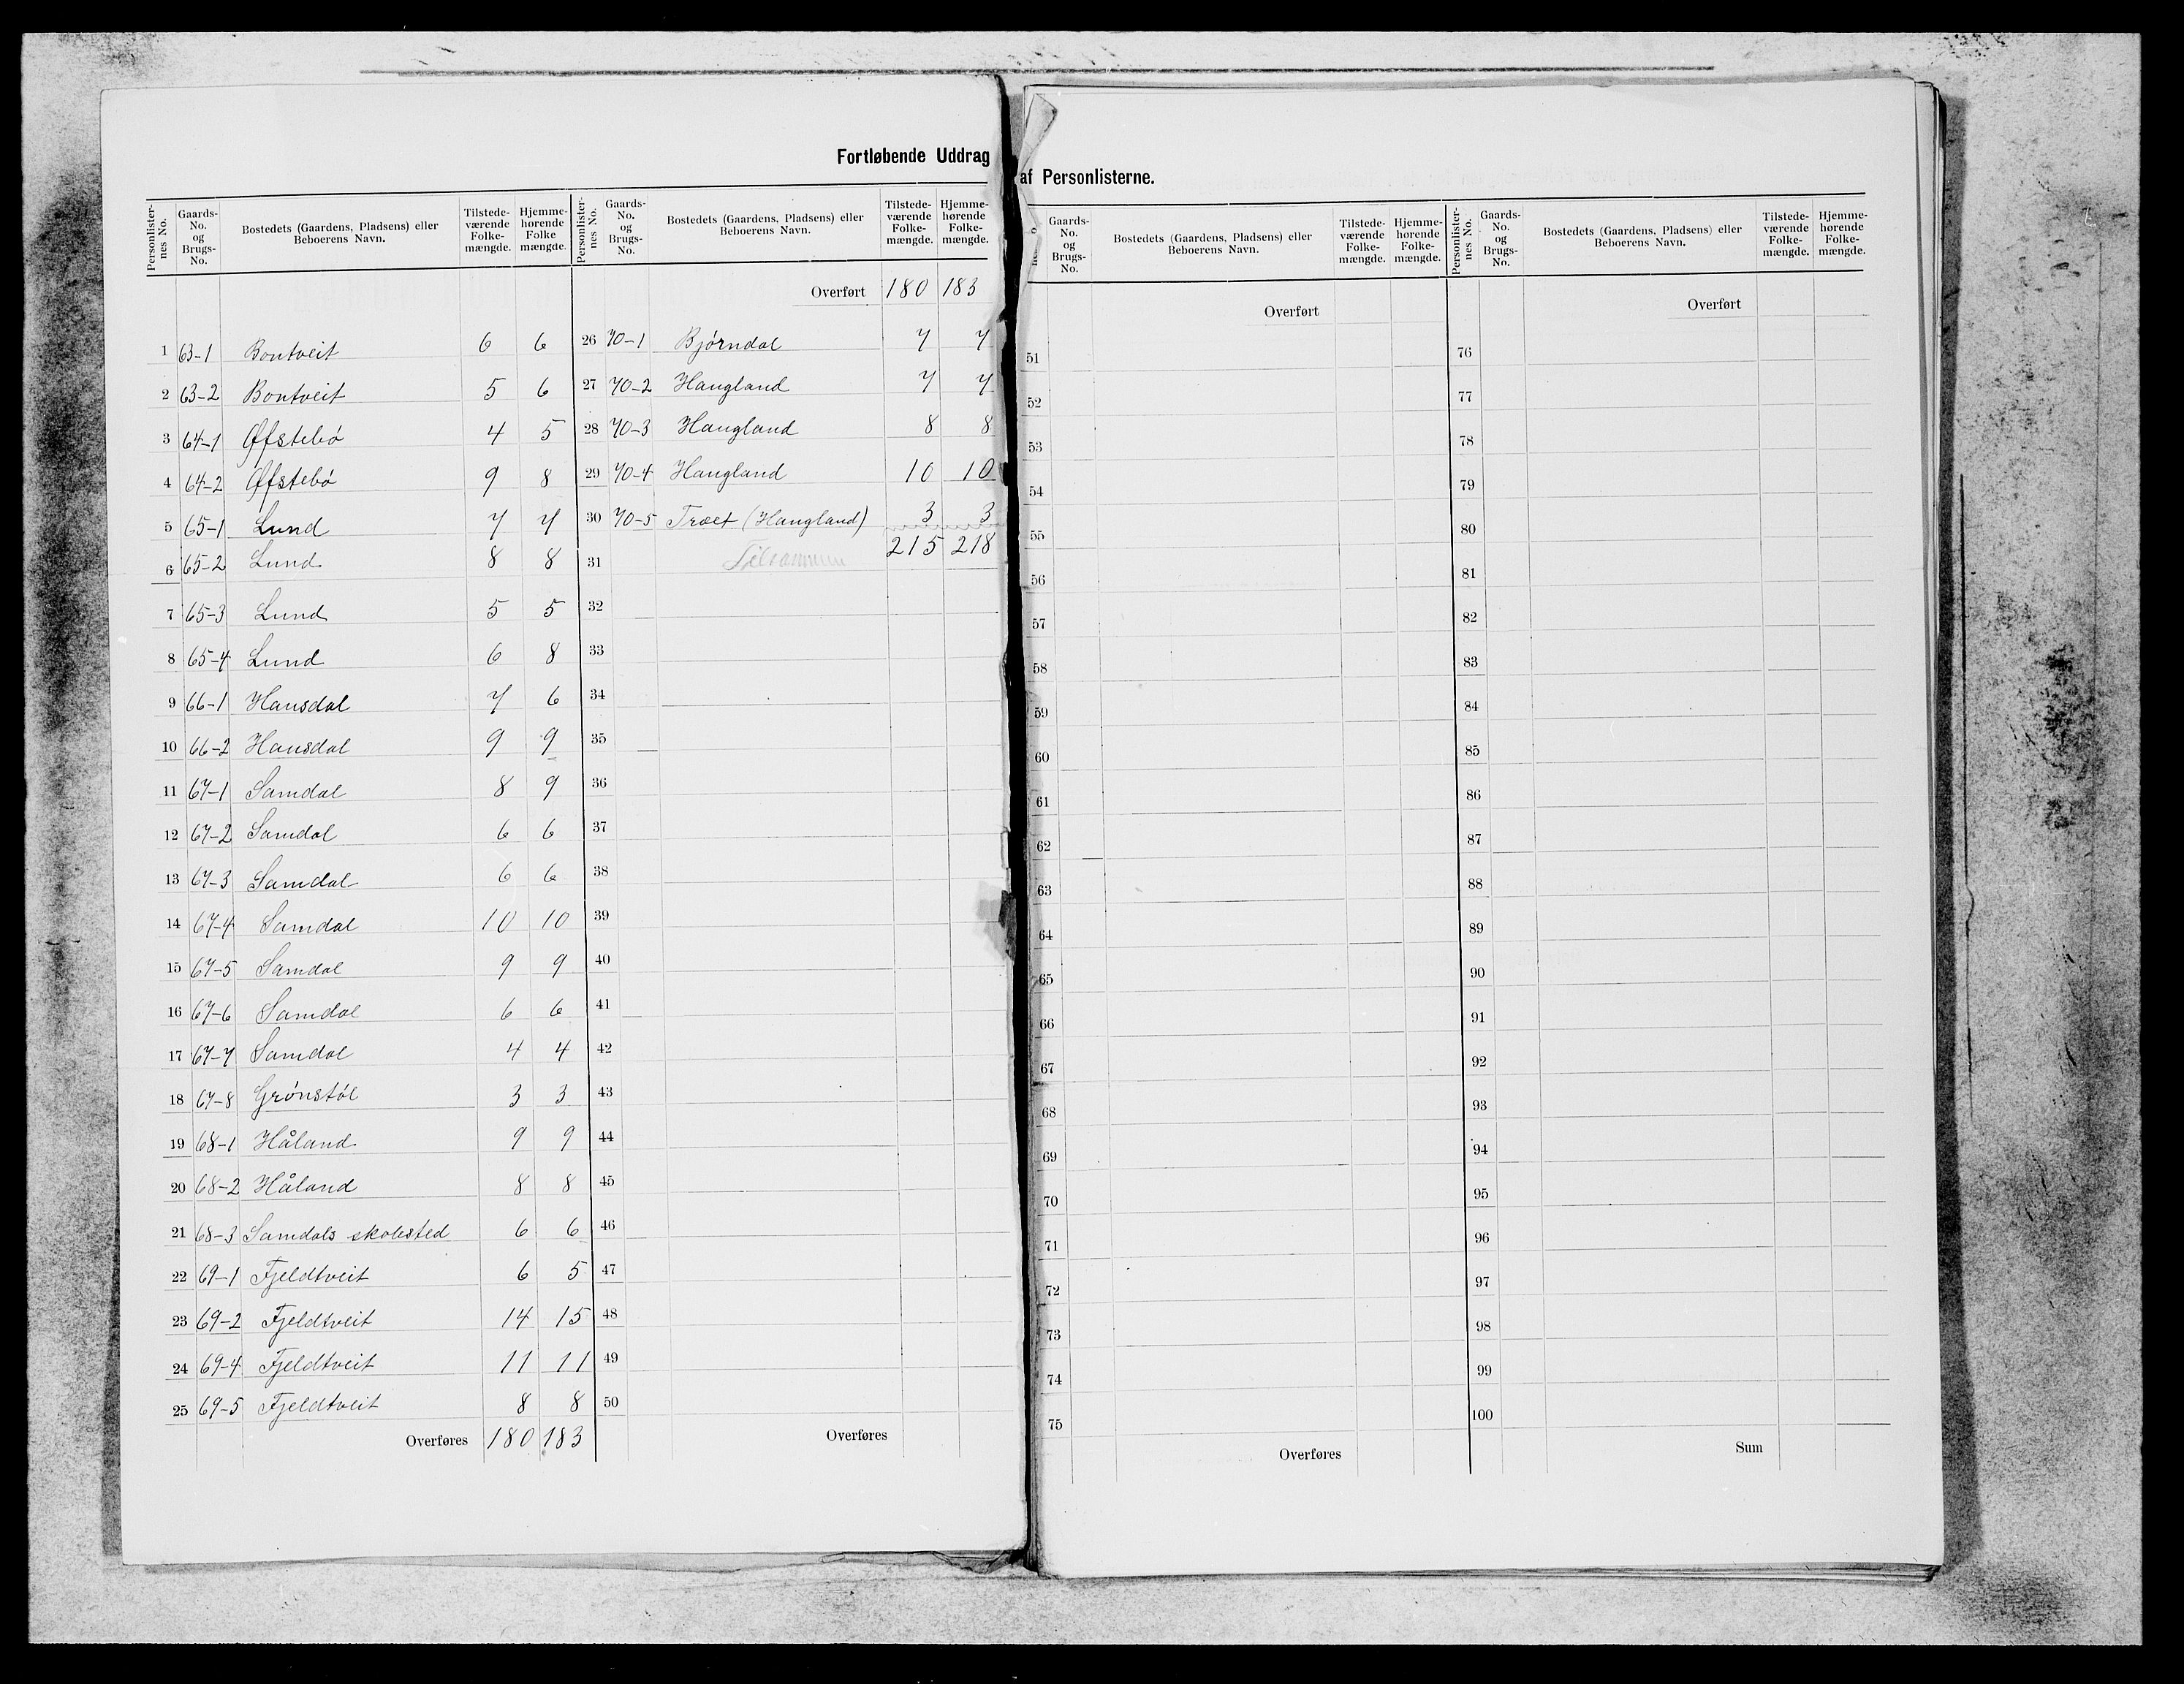 Fortløbende Uddrag af Personlisterne.
Personlister-nes No. | Gaards-No. og Brugs-No. | Bostedets (Gaardens, Pladsens) eller Beboerens Navn. | Tilstede-værende Folke-mængde. | Hjemme-hørende Folke mængde.
1 63-1 Bontveit 6 6
2 63-2 Bontveit 5 6
3 64-1 Øfstebø 4 5
4 64-2 Øfstebø 9 8
5 65-1 Lund 7 7
6 65-2 Lund 8 8
7 65-3 Lund 5 5
8 65-4 Lund 6 8
9 66-1 Hausdal 7 6
10 66-2 Hausdal 9 9
11 67-1 Samdal 8 9
12 67-2 Samdal 6 6
13 67-3 Samdal 6 6
14 67-4 Samdal 10 10
15 67-5 Samdal 9 9
16 67-6 Samdal 6 6
17 67-7 Samdal 4 4
18 67-8 Grønstøl 3 3
19 68-1 Håland 9 9
20 68-2 Håland 8 8
21 68-3 Samdals skolested 6 6
22 69-1 Fjeldtveit 6 5
23 69-2 Fjeldtveit 14 15
24 69-4 Fjeldtveit 11 11
25 69-5 Fjeldtveit 8 8
Overføres 180 183
Personlister-nes No. | Gaards-No. og Brugs-No. | Bostedets (Gaardens, Pladsens) eller Beboerens Navn. | Tilstede-værende Folke-mængde. | Hjemme-hørende Folke-mængde.
Overført 180 183
26 70-1 Bjørndal 7 7
27 70-2 Haugland 7 7
28 70-3 Haugland 8 8
29 70-4 Haugland 10 10
30 70-5 Træet (Haugland) 3 3
31 Tilsammen 215 218
32
33
34
35
36
37
38
39
40
41
42
43
44
45
46
47
48
49
50
Overføres
Gaards-No. og Brugs-No. | Bostedets (Gaardens, Pladsens) eller Beboerens Navn. | Tilstede-værende Folke-mængde. | Hjemme-hørende Folke-mængde.
Overført
51
52
53
54
55
56
57
58
59
60
61
62
63
64
65
66
67
68
69
70
71
72
73
74
75
Overføres
Personlister-nes No. | Gaards-No. og Brugs-No. | Bostedets (Gaardens, Pladsens) eller Beboerens Navn. | Tilstede-værende Folke-mængde. | Hjemme-hørende Folke-mængde.
Overført
76
77
78
79
80
81
82
83
84
85
86
87
88
89
90
91
92
93
94
95
96
97
98
99
100
Sum